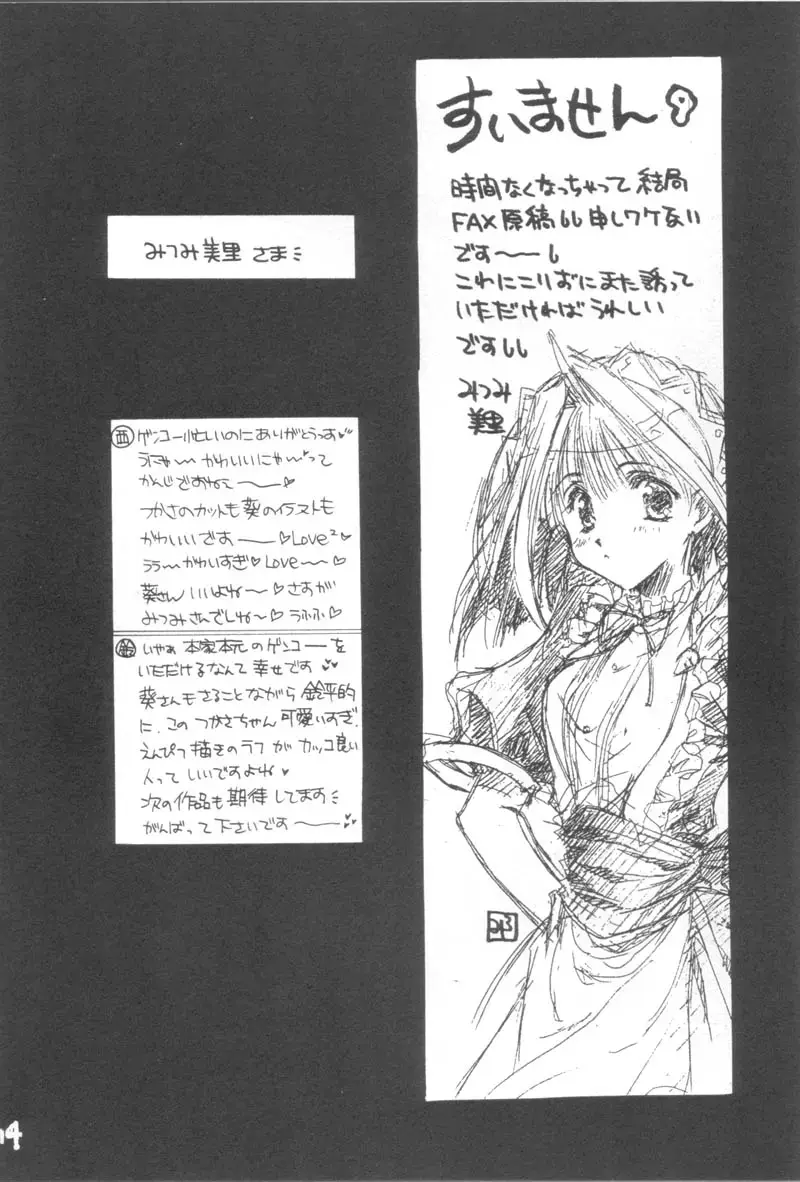 すいません
時間なくなっちゃって結局
FAX原稿 申しワケない
です〜〜
これにこりずにまた誘って
いただければうれしい
です
みつみ
美里
みつみ美里 さま
西 ゲンコー忙しいのにありがとうっす
うにゃ〜〜かわいいにゃ〜って
かんじですねェ〜〜♡
つかさのカットも葵のイラストも
かわいいです〜〜♡Love²
ララ〜かわいすぎ♡Love〜〜♡
葵さんいいよね〜♡さすが
みつみさんでしね〜♡うふふ♡
鈴 いやぁ 本家本元のゲンコーを
いただけるなんて幸せです
葵さんもさることながら鈴平的
に、このつかさちゃん可愛いすぎ。
えんぴつ描きのラフがカッコ良い
人っていいですよね
次の作品も期待してます
がんばって下さいです〜〜
14